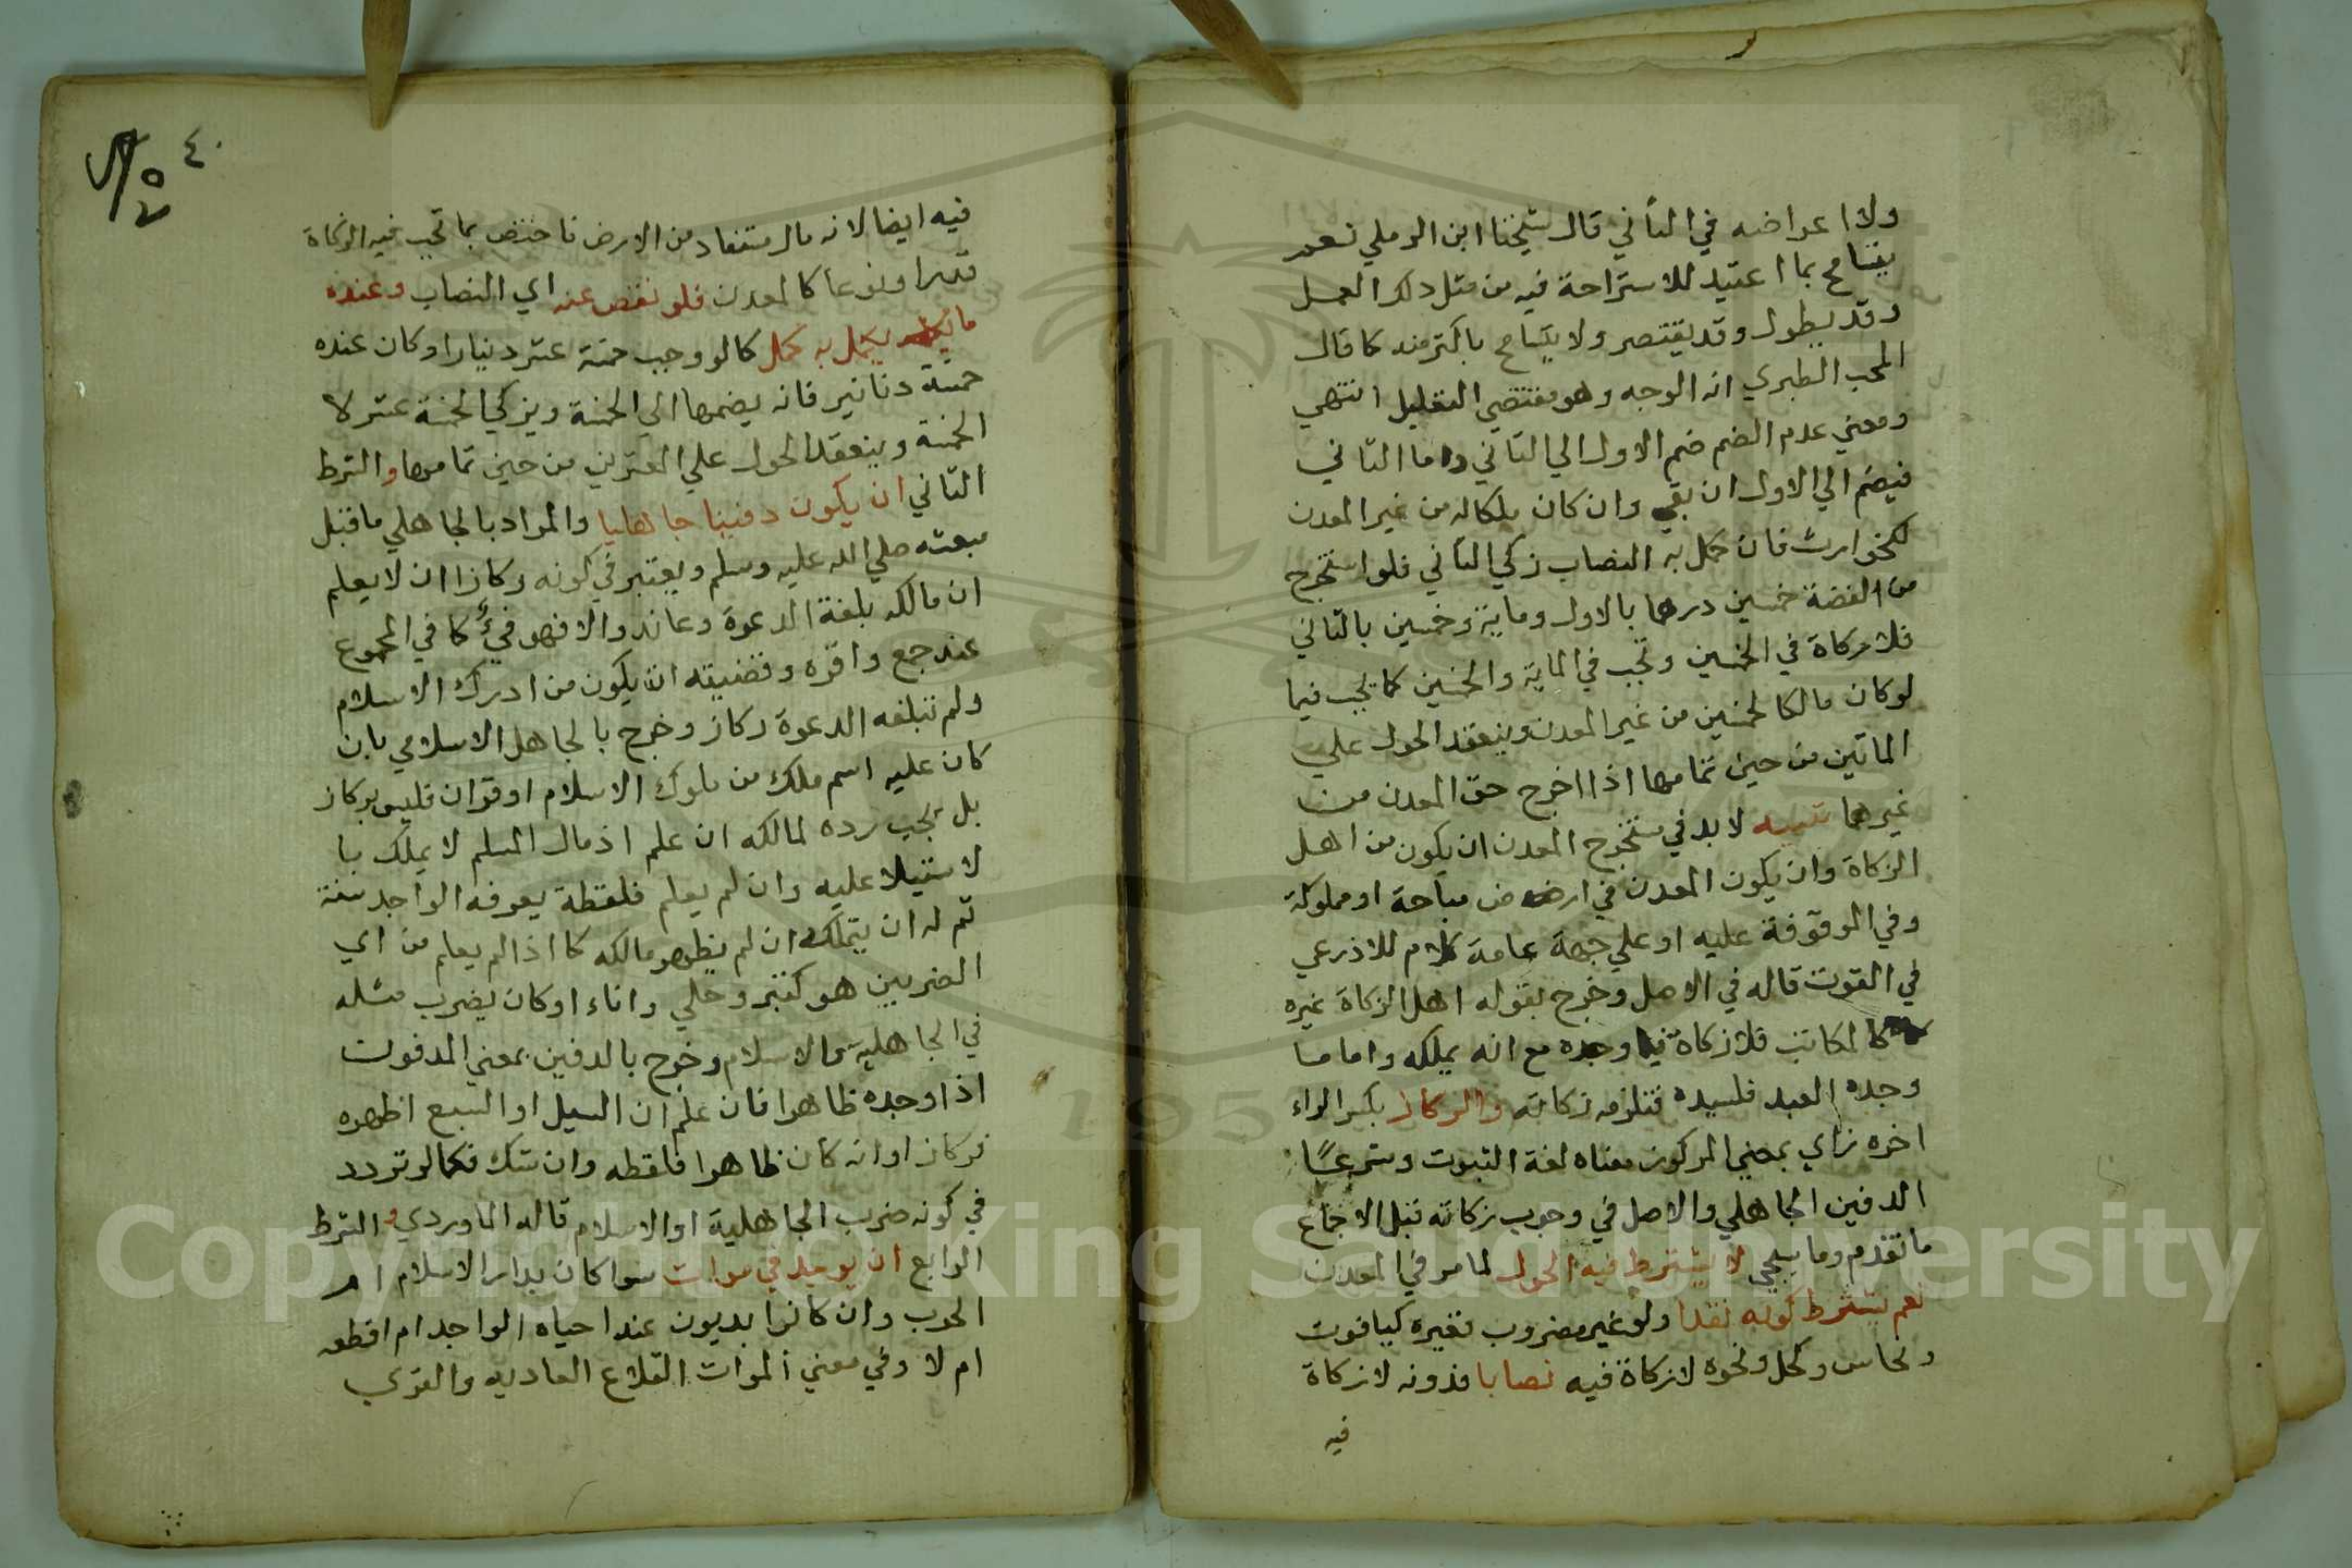 ولا اعراضه في الثاني قال شيخنا ابن الرملي نعم
يتسامح بما اعتيد للاستراحة فيه من مثل ذلك العمل
وقد يطول وقد يقتصر ولا يتسامح باكثر منه كما قال
المحب الطبري انه الوجه وهو مقتضي التعليل انتهي
ومعني عدم الضم ضم الاول الي الثاني واما الثاني
فيضم الي الاول ان بقي وان كان ملكاله من غير المعدن
كنحو ارث فان كمل به النصاب زكي الثاني فلو استخرج
من الفضة خمسين درهما بالاول وماية وخمسين بالثاني
فلا زكاة في الخمسين وتجب في الماية والخمسين كما تجب فيما
لو كان مالكا لخمسين من غير المعدن وينعقد الحول علي
الماتين من حين تمامها اذا اخرج حق المعدن من
غيرهما تنبيه لابد في مستخرج المعدن ان يكون من اهل
الزكاة وان يكون المعدن في ارض مباحة او مملوكة
وفي الموقوفة عليه او علي جهة عامة كلام للاذرعي
في القوت قاله في الاصل وخرج بقوله اهل الزكاة غيره
كالمكاتب فلا زكاة فيما وجده مع انه يملكه واما ما
وجده العبد فلسيده فتلزمه زكاته والركاز بكسر الراء
اخره زاي بمعني المركوز معناه لغة الثبوت وشرعا
الدفين الجاهلي والاصل في وجوب زكاته قبل الاجماع
ما تقدم وما يجي لا يشترط فيه الحول لما مر في المعدن
نعم يشترط كونه نقدا ولو غير مضروب فغيره كياقوت
ونحاس وكحل ونحوه لا زكاة فيه نصابا فدونه لا زكاة
فيه
٤٠
فيه ايضا لانه مال مستفاد من الارض فاختص بما تجب فيه الزكاة
قدرا ونوعا كالمعدن فلو نقص عنه اي النصاب وعنده
ما يكمل به كمل كما لو وجب خمسة عشر دينارا وكان عنده
خمسة دنانير فانه يضمها الي الخمسة ويزكي الخمسة عشر لا
الخمسة وينعقد الحول علي العشرين من حين تمامها والشرط
الثاني ان يكون دفينا جاهليا والمراد بالجاهلي ما قبل
مبعثه صلي الله عليه وسلم ويعتبر في كونه ركازا ان لا يعلم
ان مالكه بلغة الدعوة وعاند والا فهو فيء كما في المجموع
عند جمع واقره وقضيته ان يكون من ادرك الاسلام
ولم تبلغه الدعوة ركاز وخرج بالجاهل الاسلامي بان
كان عليه اسم ملك من ملوك الاسلام او قران فليس بركاز
بل يجب رده لمالكه ان علم اذ مال المسلم لا يملك با
لاستيلا عليه وان لم يعلم فلقطة يعرفه الواجد سنة
ثم له ان يتملكه ان لم يظهر مالكه كما اذا لم يعلم من اي
الضربين هو كتبر وحلي واناء او كان يضرب مثله
في الجاهلية والاسلام وخرج بالدفين بمعني المدفون
اذا وجده ظاهرا فان علم ان السيل او السبع اظهره
فركاز او انه كان ظاهرا فلقطه وان شك فكما لو تردد
في كونه ضرب الجاهلية او الاسلام قاله الماوردي و الشرط
الرابع ان يوجد في موات سوا كان بدار الاسلام ام
الحرب وان كانوا يذبون عنه احياه الواجد ام اقطعه
ام لا وفي معني الموات القلاع العاديه والقري
Copyright © King Saud University
195